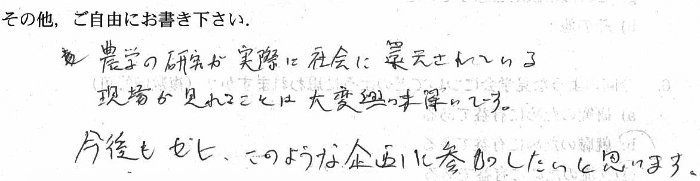 その他，ご自由にお書き下さい．
農学の研究が実際に社会に還元されている
現場が見れることは大変興味深いです。
今後もぜひ、このような企画に参加したいと思います。